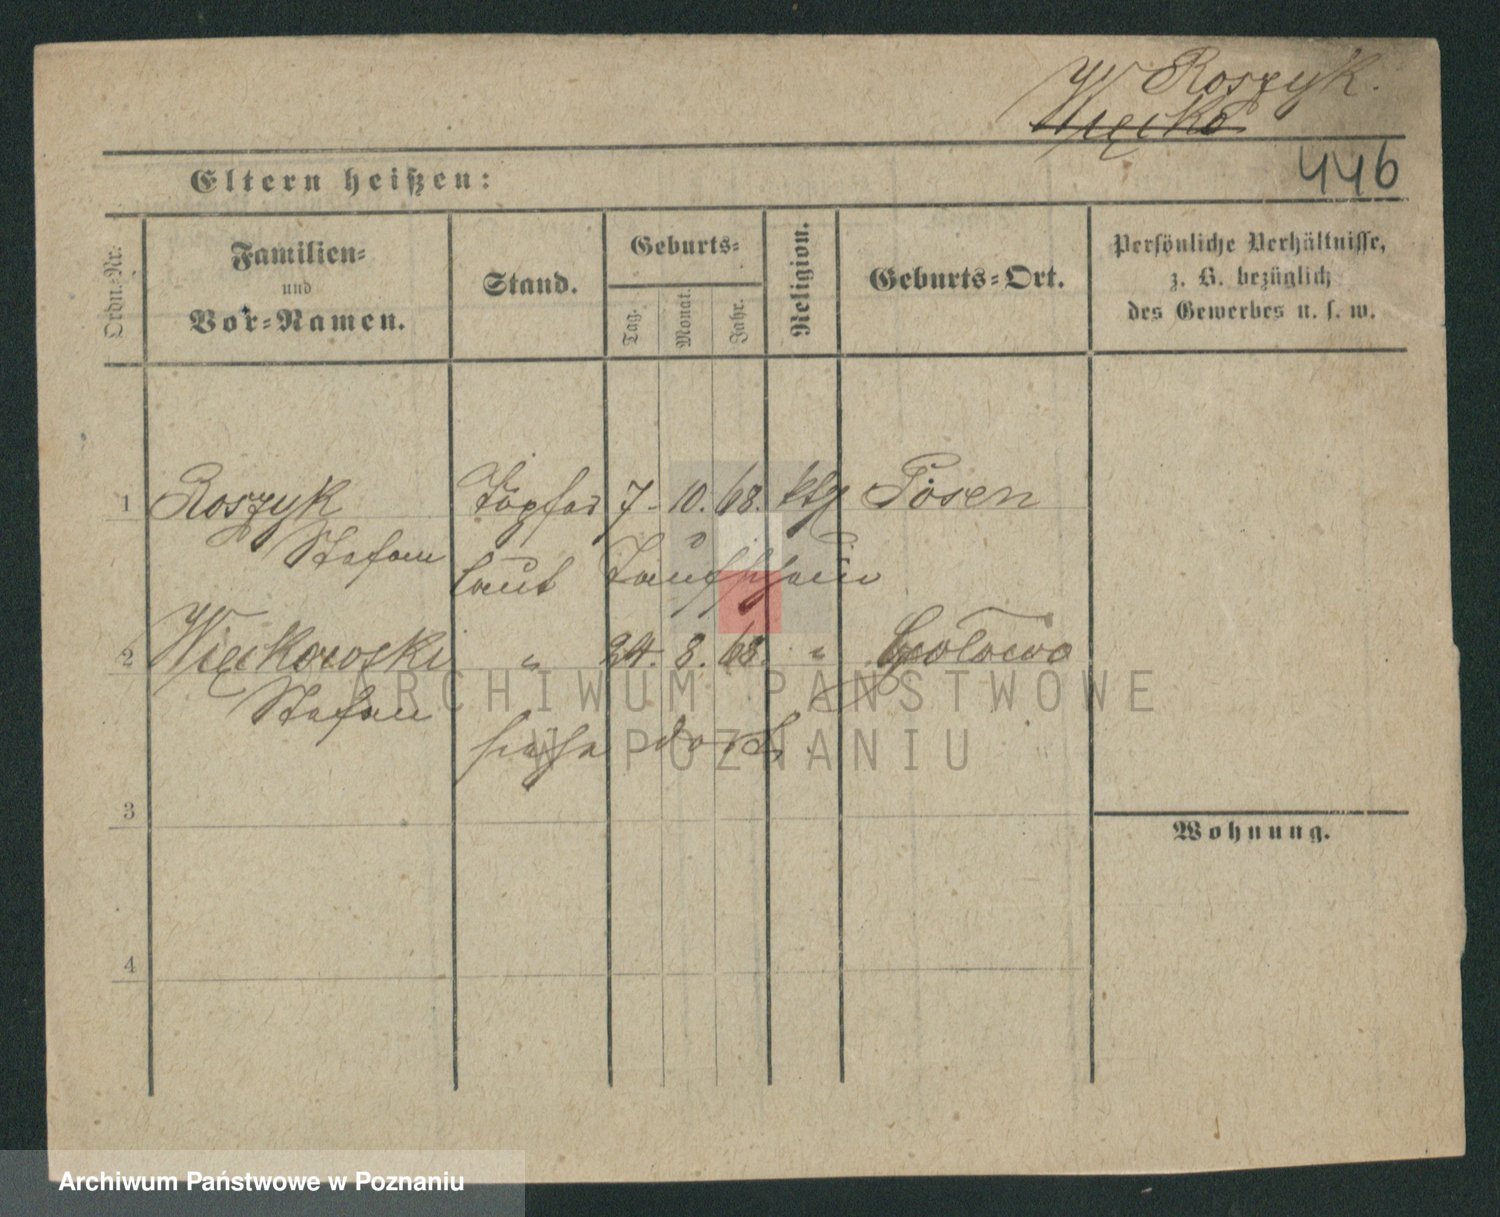 Roszyk.
Więcko
446
Eltern heißen:
Ordn.-Nr.
Familien-
und
Vor-Namen.
Stand.
Geburts-
Tag.
Monat.
Jahr.
Religion.
Geburts-Ort.
Persönliche Verhältnisse,
z. B. bezüglich
des Gewerbes u. s. w.
1 Roszyk Töpfer 7. 10. 68. ktl Posen
Stefan
laut Taufschein
2 Więckowski " 24. 8. 68. "
Stefan
siehe dort
ARCHIWUM PAŃSTWOWE
W POZNANIU
3
Wohnung.
4
Archiwum Państwowe w Poznaniu